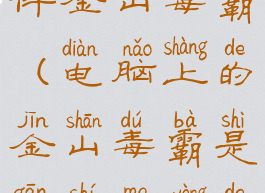 金山毒霸
diàn nǎo shàng de
（电脑上的
jīn shān dú bà shì
金山毒霸是